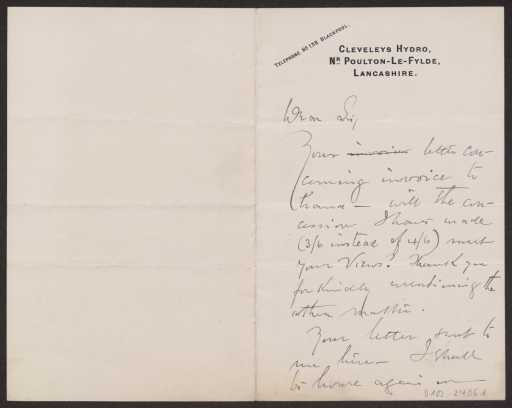 TELEPHONE NO 158 BLACKPOOL.
CLEVELEYS HYDRO,
NR POULTON-LE-FYLDE,
LANCASHIRE.
Dear Sir,
Your invoice letter con-
cerning invoice to
hand — will the con-
cession I have made
(3/6 instead of 4/6) meet
your views? Thank you
for kindly mentioning the
other matter.
Your letter sent to
me here — I shall
be home again on